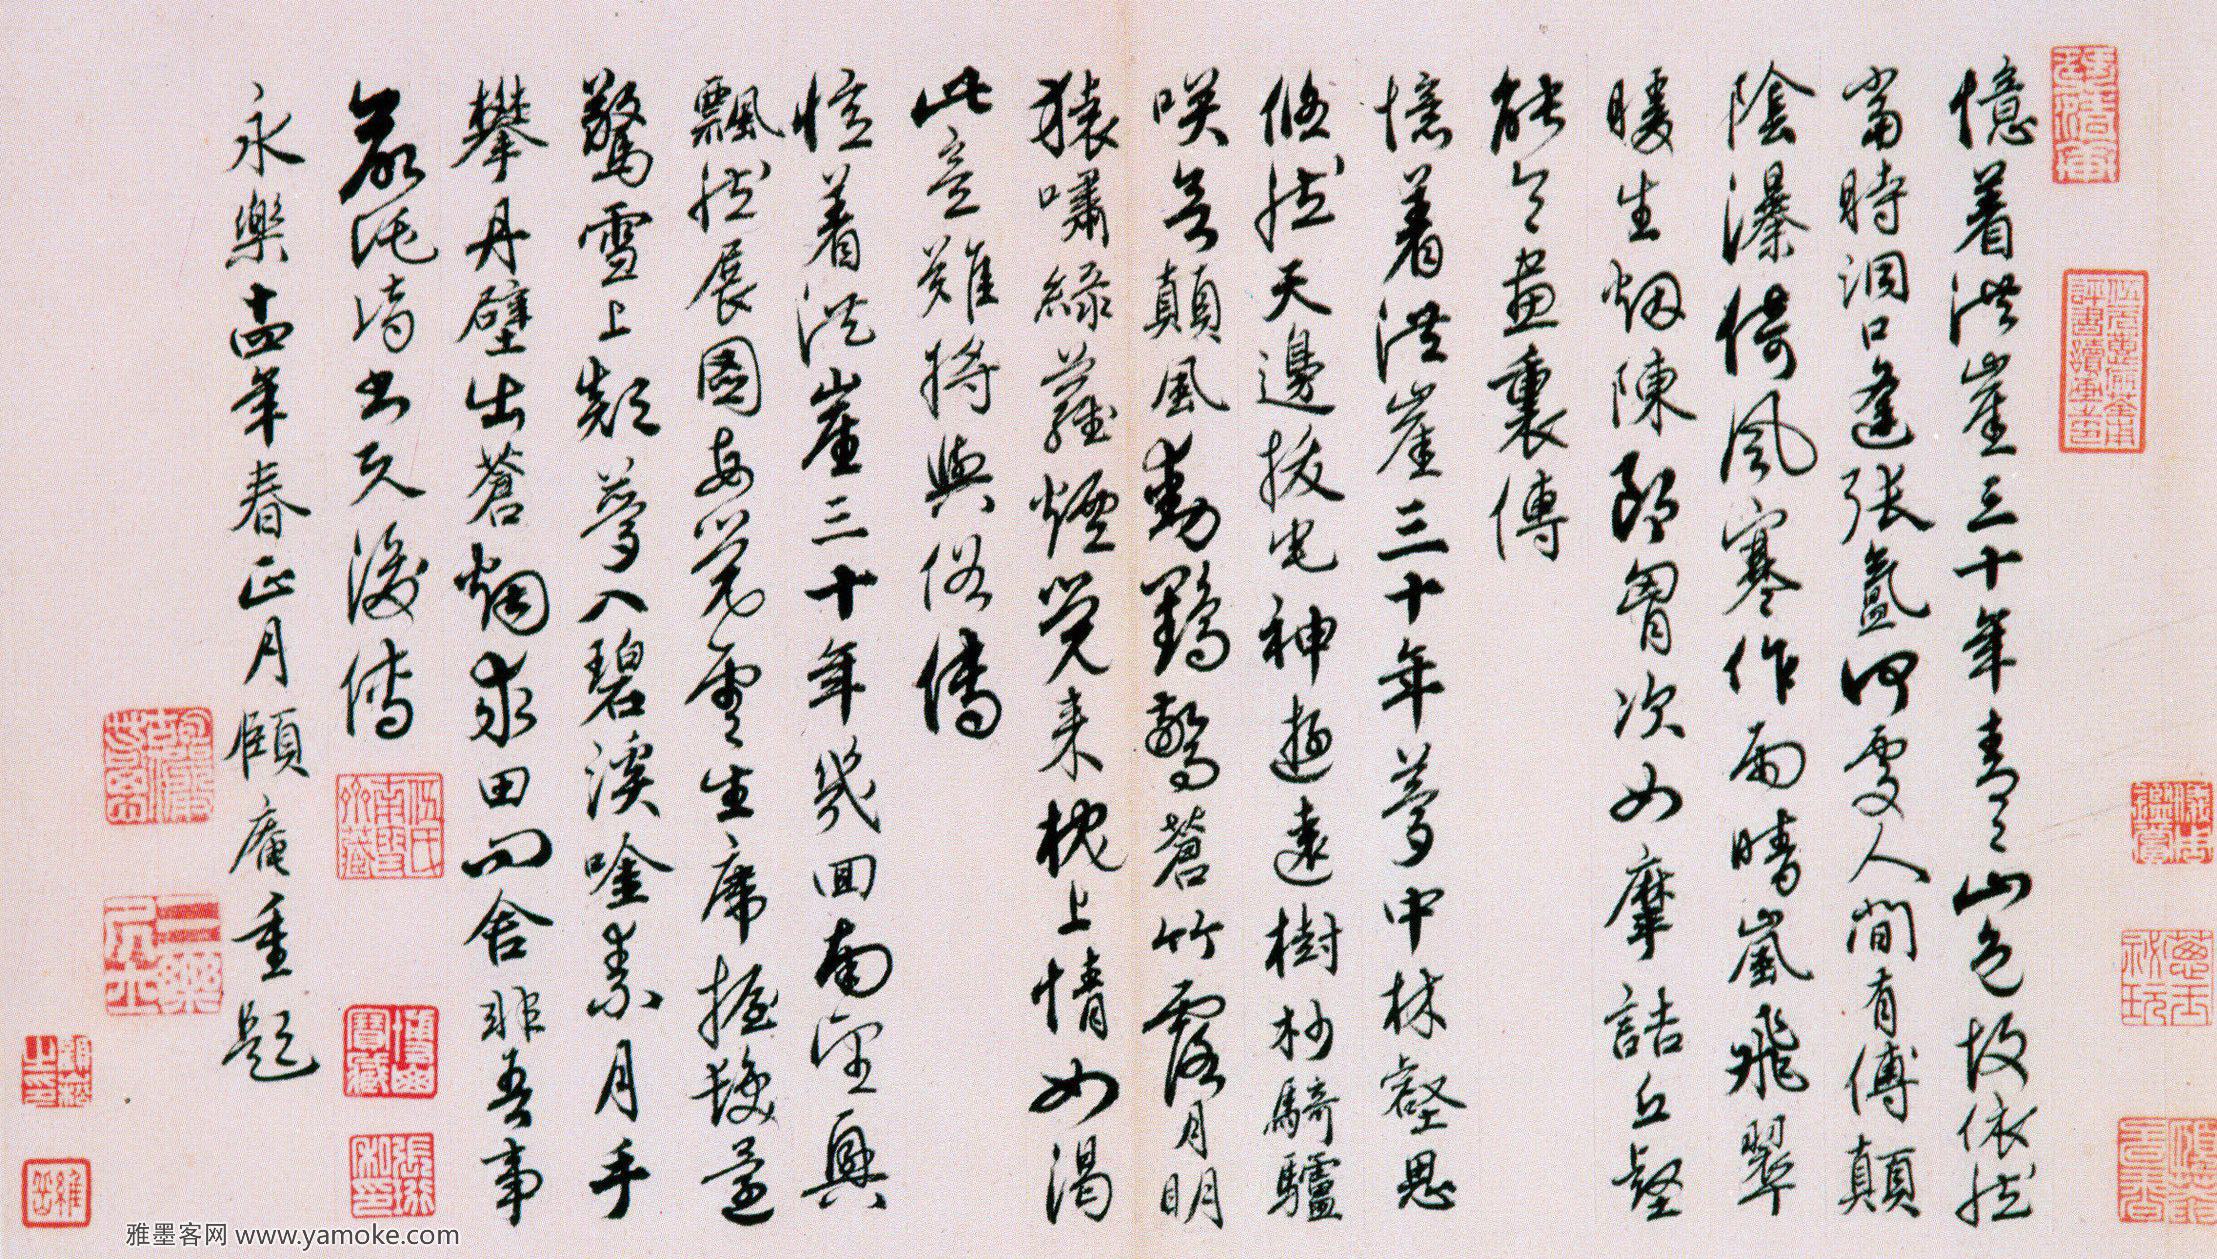 憶着洪崖三十年青〻山色故依然
當時洞口逢張氳何處人間有傅顛
陰瀑倚風寒作雨晴嵐飛翠
暖生烟陳郎胷次如摩詰丘壑
能令畫裏傳
憶着洪崖三十年夢中林壑思
悠然天邊拔宅神遊遠樹杪騎驢
咲各顛風動鸐驚蒼竹露月明
猿嘯綠蘿煙覺來枕上情如渴
此意難將與俗傳
憶着洪崖三十年幾回南望興
飄然展圖每覺雲生席握髮還
驚雪上顛夢入碧溪唫素月手
攀丹壁出蒼烟求田問舍非吾事
詩書久後傳
永樂十四年春正月頤庵重題
伍氏南雪齋藏
雅墨客网 www.yamoke.com